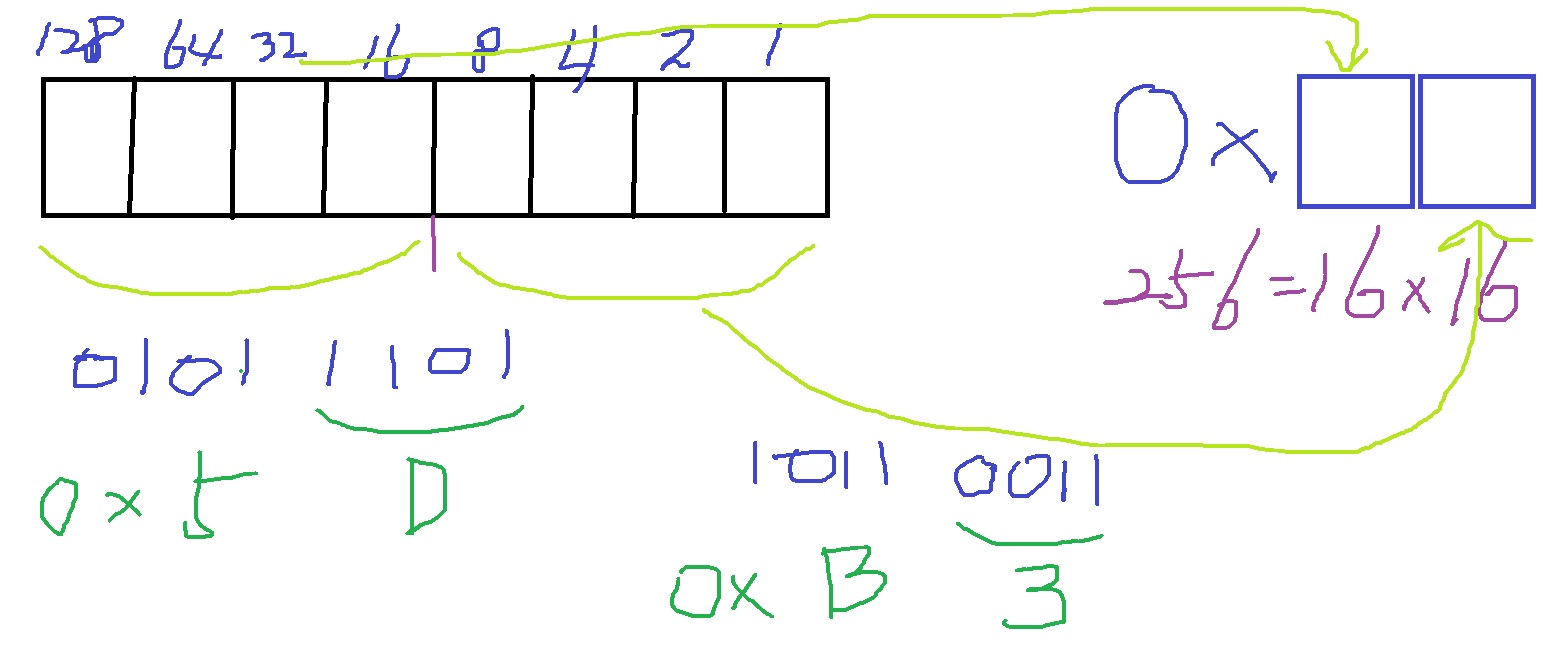 128 64 32 16 8 4 2 1
0x
256=16×16
0101 1101
1011 0011
0x5 D
0x B 3